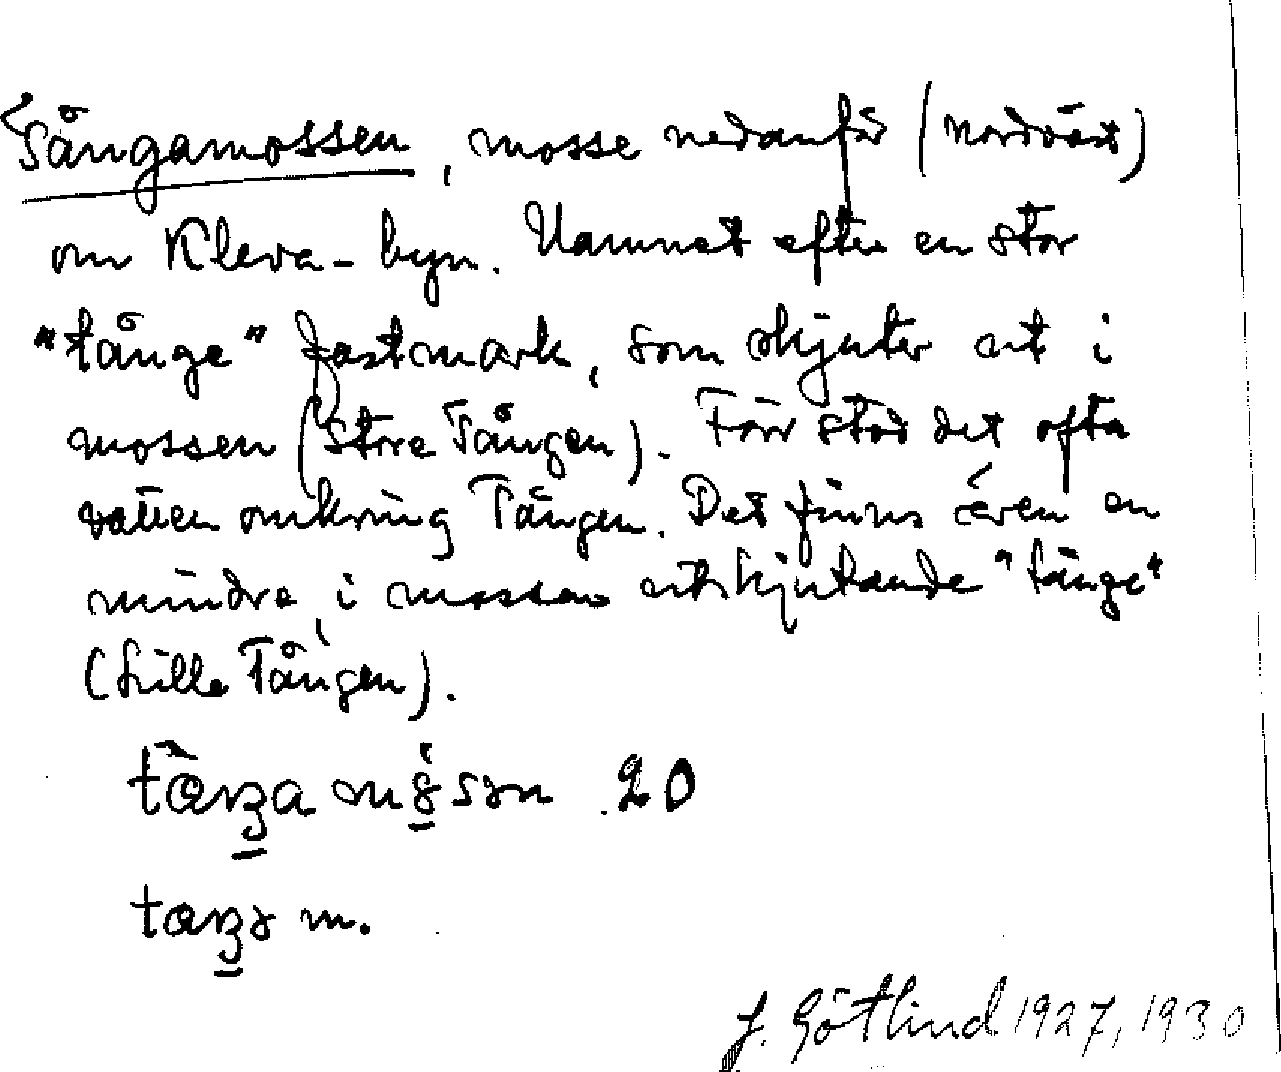 Tångamossen, mosse nedanför (nordväst)
om Kleva-byn. Namnet efter en stor
"tånge" fastmark, som skjuter ut i
mossen (Store Tången). Förr stod det ofta
vatten omkring Tången. Det finns även en
mindre, i mossen utskjutande "tånge"
(Lille Tången).
20
m.
J. Götlind 1927, 1930